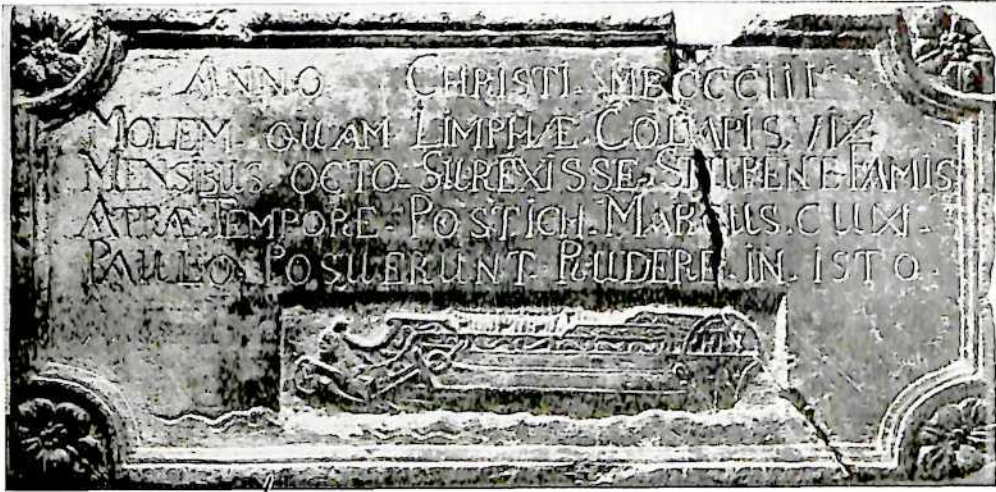 ANNO CHRISTI MDCCCIII
MOLEM QUAM LIMPHÆ COLLAPIS VIX
MENSIBUS OCTO SUREXISSE STUPENT FAMIS
ATRÆ TEMPORE POSTICH MARTIUS C UXI
PAULLO POSUERUNT RUDERE IN ISTO